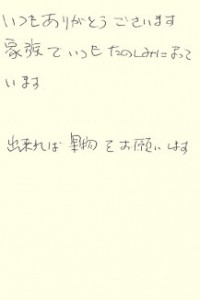 いつもありがとうございます
家族でいつもたのしみにまって
います
出来れば果物をお願いします